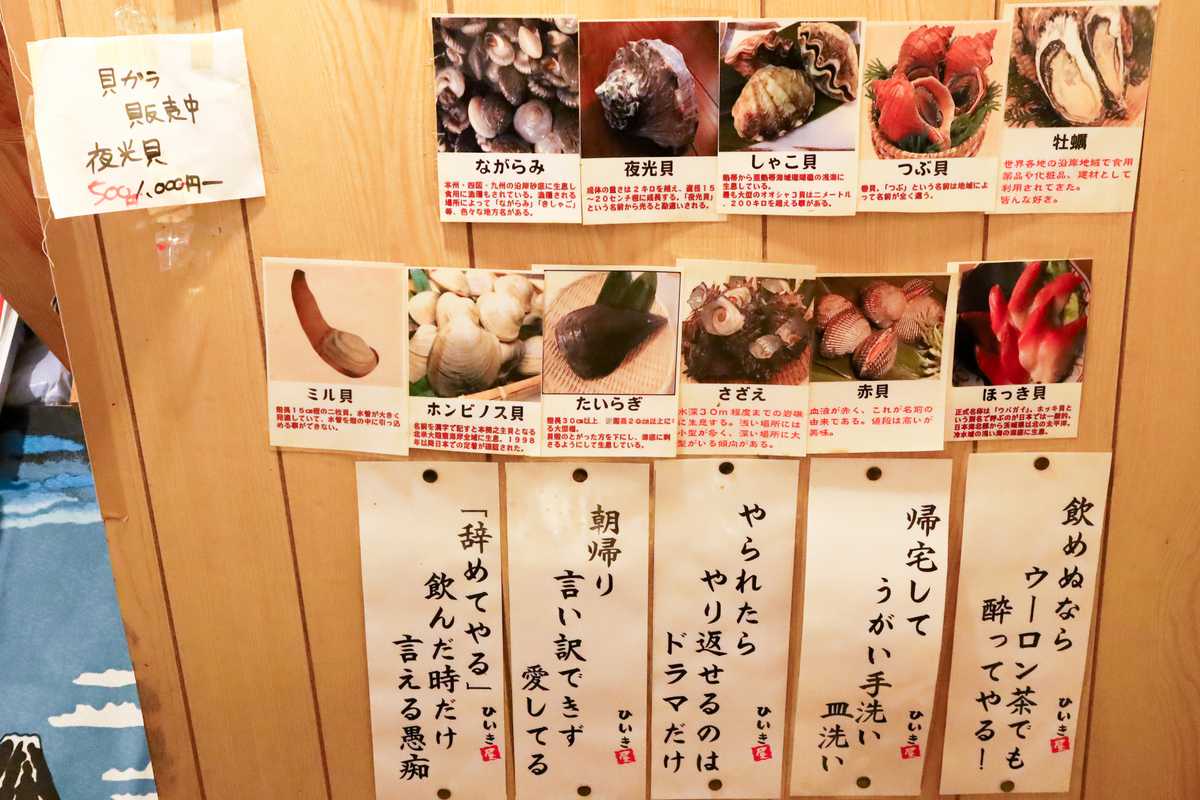 貝ガラ
販売中
夜光貝
500g 1.000円ー
ながらみ
本州・四国・九州の沿岸砂底に生息し
食用に漁獲されている。漁獲される
場所によって「ながらみ」「きしゃご」
等、色々な地方名がある。
夜光貝
成体の重さは2キロを越え、直径15
～20センチ程に成長する。「夜光貝」
という名前から光ると勘違いされる。
しゃこ貝
熱帯から亜熱帯海域珊瑚礁の浅海に
生息している。
最も大型のオオシャコ貝は二メートル
、200キロを超える事がある。
つぶ貝
巻貝。「つぶ」という名前は地域によ
って名前が全く違う。
牡蠣
世界各地の沿岸地域で食用
薬品や化粧品、建材として
利用されてきた。
皆んな好き。
ミル貝
殻長15㎝程の二枚貝。水管が大きく
発達していて、水管を殻の中に引っ込
める事ができない。
ホンビノス貝
名前を漢字で記すと本美之主貝となる
北米大陸東海岸全域に生息。1998
年以降日本での定着が確認された。
たいらぎ
殻長30㎝以上、殻高20㎝以上に
る大型種。
貝殻のとがった方を下にし、海底に刺
さるようにして生息している。
さざえ
水深30m程度までの岩礁
に生息する。浅い場所には
小型が多く、深い場所に大
型がいる傾向がある。
赤貝
血液が赤く、これが名前の
由来である。値段は高いが
美味。
ほっき貝
正式名称は「ウバガイ」。ホッキ貝と
いう別名で呼ぶのが日本では一般的。
日本海北部から茨城県以北の太平洋。
冷水域の浅い海の海底に生息。
飲めぬなら
ウーロン茶でも
酔ってやる！
ひいき屋
帰宅して
うがい手洗い
皿洗い
ひいき屋
やられたら
やり返せるのは
ドラマだけ
ひいき屋
朝帰り
言い訳できず
愛してる
ひいき屋
「辞めてやる」
飲んだ時だけ
言える愚痴
ひいき屋